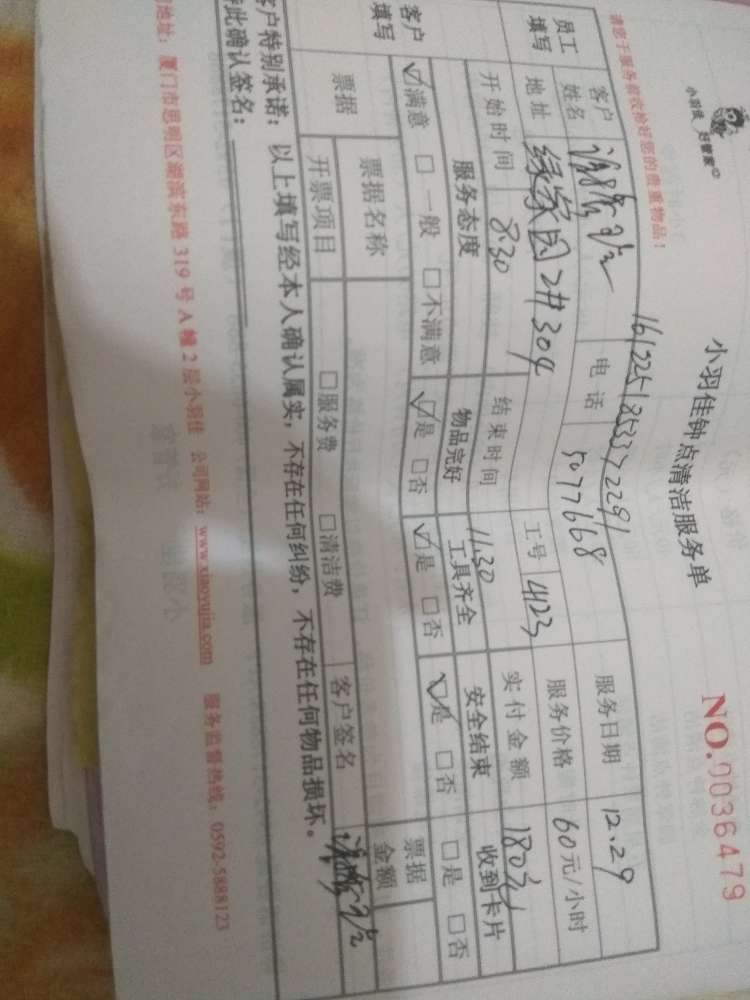 小羽佳 好管家
小羽佳钟点清洁服务单
NO.0036479
请您于服务前收拾好您的贵重物品！
1612251853372291
员工填写 客户姓名 电话 5077668 服务日期 12.29
地址 绿家园2#304 工号 4123 服务价格 60元/小时
开始时间 8.30 结束时间 11.30 实付金额 180元
客户填写 服务态度 物品完好 工具齐全 安全结束 收到卡片
☑满意 □一般 □不满意 ☑是 □否 ☑是 □否 ☑是 □否 □是 □否
票据 票据名称 票据金额
开票项目 □服务费 □清洁费 客户签名
客户特别承诺：以上填写经本人确认属实，不存在任何纠纷，不存在任何物品损坏。
特此确认签名：
地址：厦门市思明区湖滨东路319号A幢2层小羽佳 公司网站：www.xiaoyujia.com 服务监督热线：0592-5888123